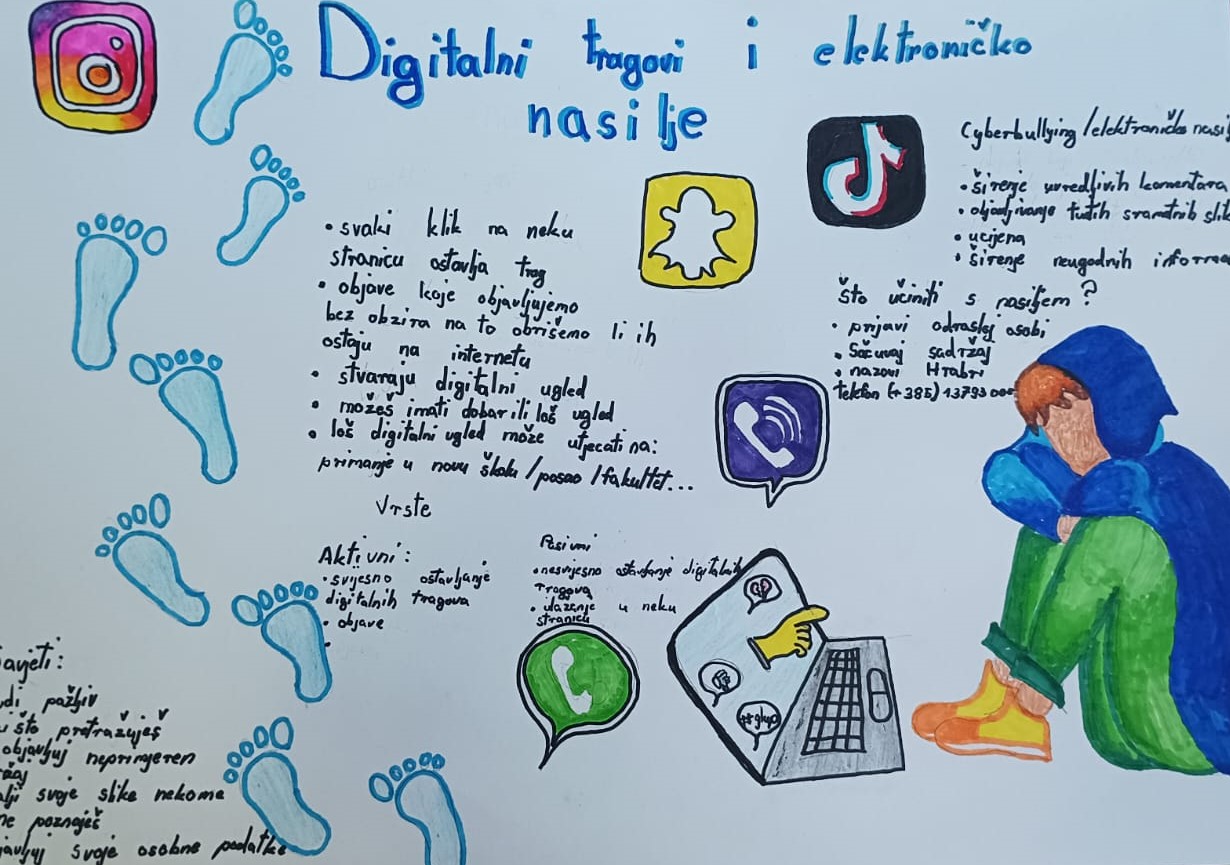 Digitalni tragovi i elektroničko
nasilje
• svaki klik na neku
stranicu ostavlja trag
• objave koje objavljujemo
bez obzira na to obrišemo li ih
ostaju na internetu
• stvaraju digitalni ugled
• možeš imati dobar ili loš ugled
• loš digitalni ugled može utjecati na:
primanje u novu školu/posao/fakultet...
Vrste
Aktivni:
• svijesno ostavljanje
digitalnih tragova
• objave
•
Pasivni
• nesvijesno ostavljanje digitalnih
tragova
• ulazenje u neku
stranicu
Cyberbullying/elektroničko nasi
• širenje uvredljivih komentara
• objavljivanje tuđih sramotnih slik
• ucijena
• širenje neugodnih informa
Što učiniti s nasiljem?
• prijavi odrasloj osobi
• Sačuvaj sadržaj
• nazovi Hrabri
telefon (+385) 13793 000
avjeti:
di pažljiv
što pretražuješ
objavljuj neprimjeren
žaj
lji svoje slike nekome
ne poznaješ
javljuj svoje osobne podatke